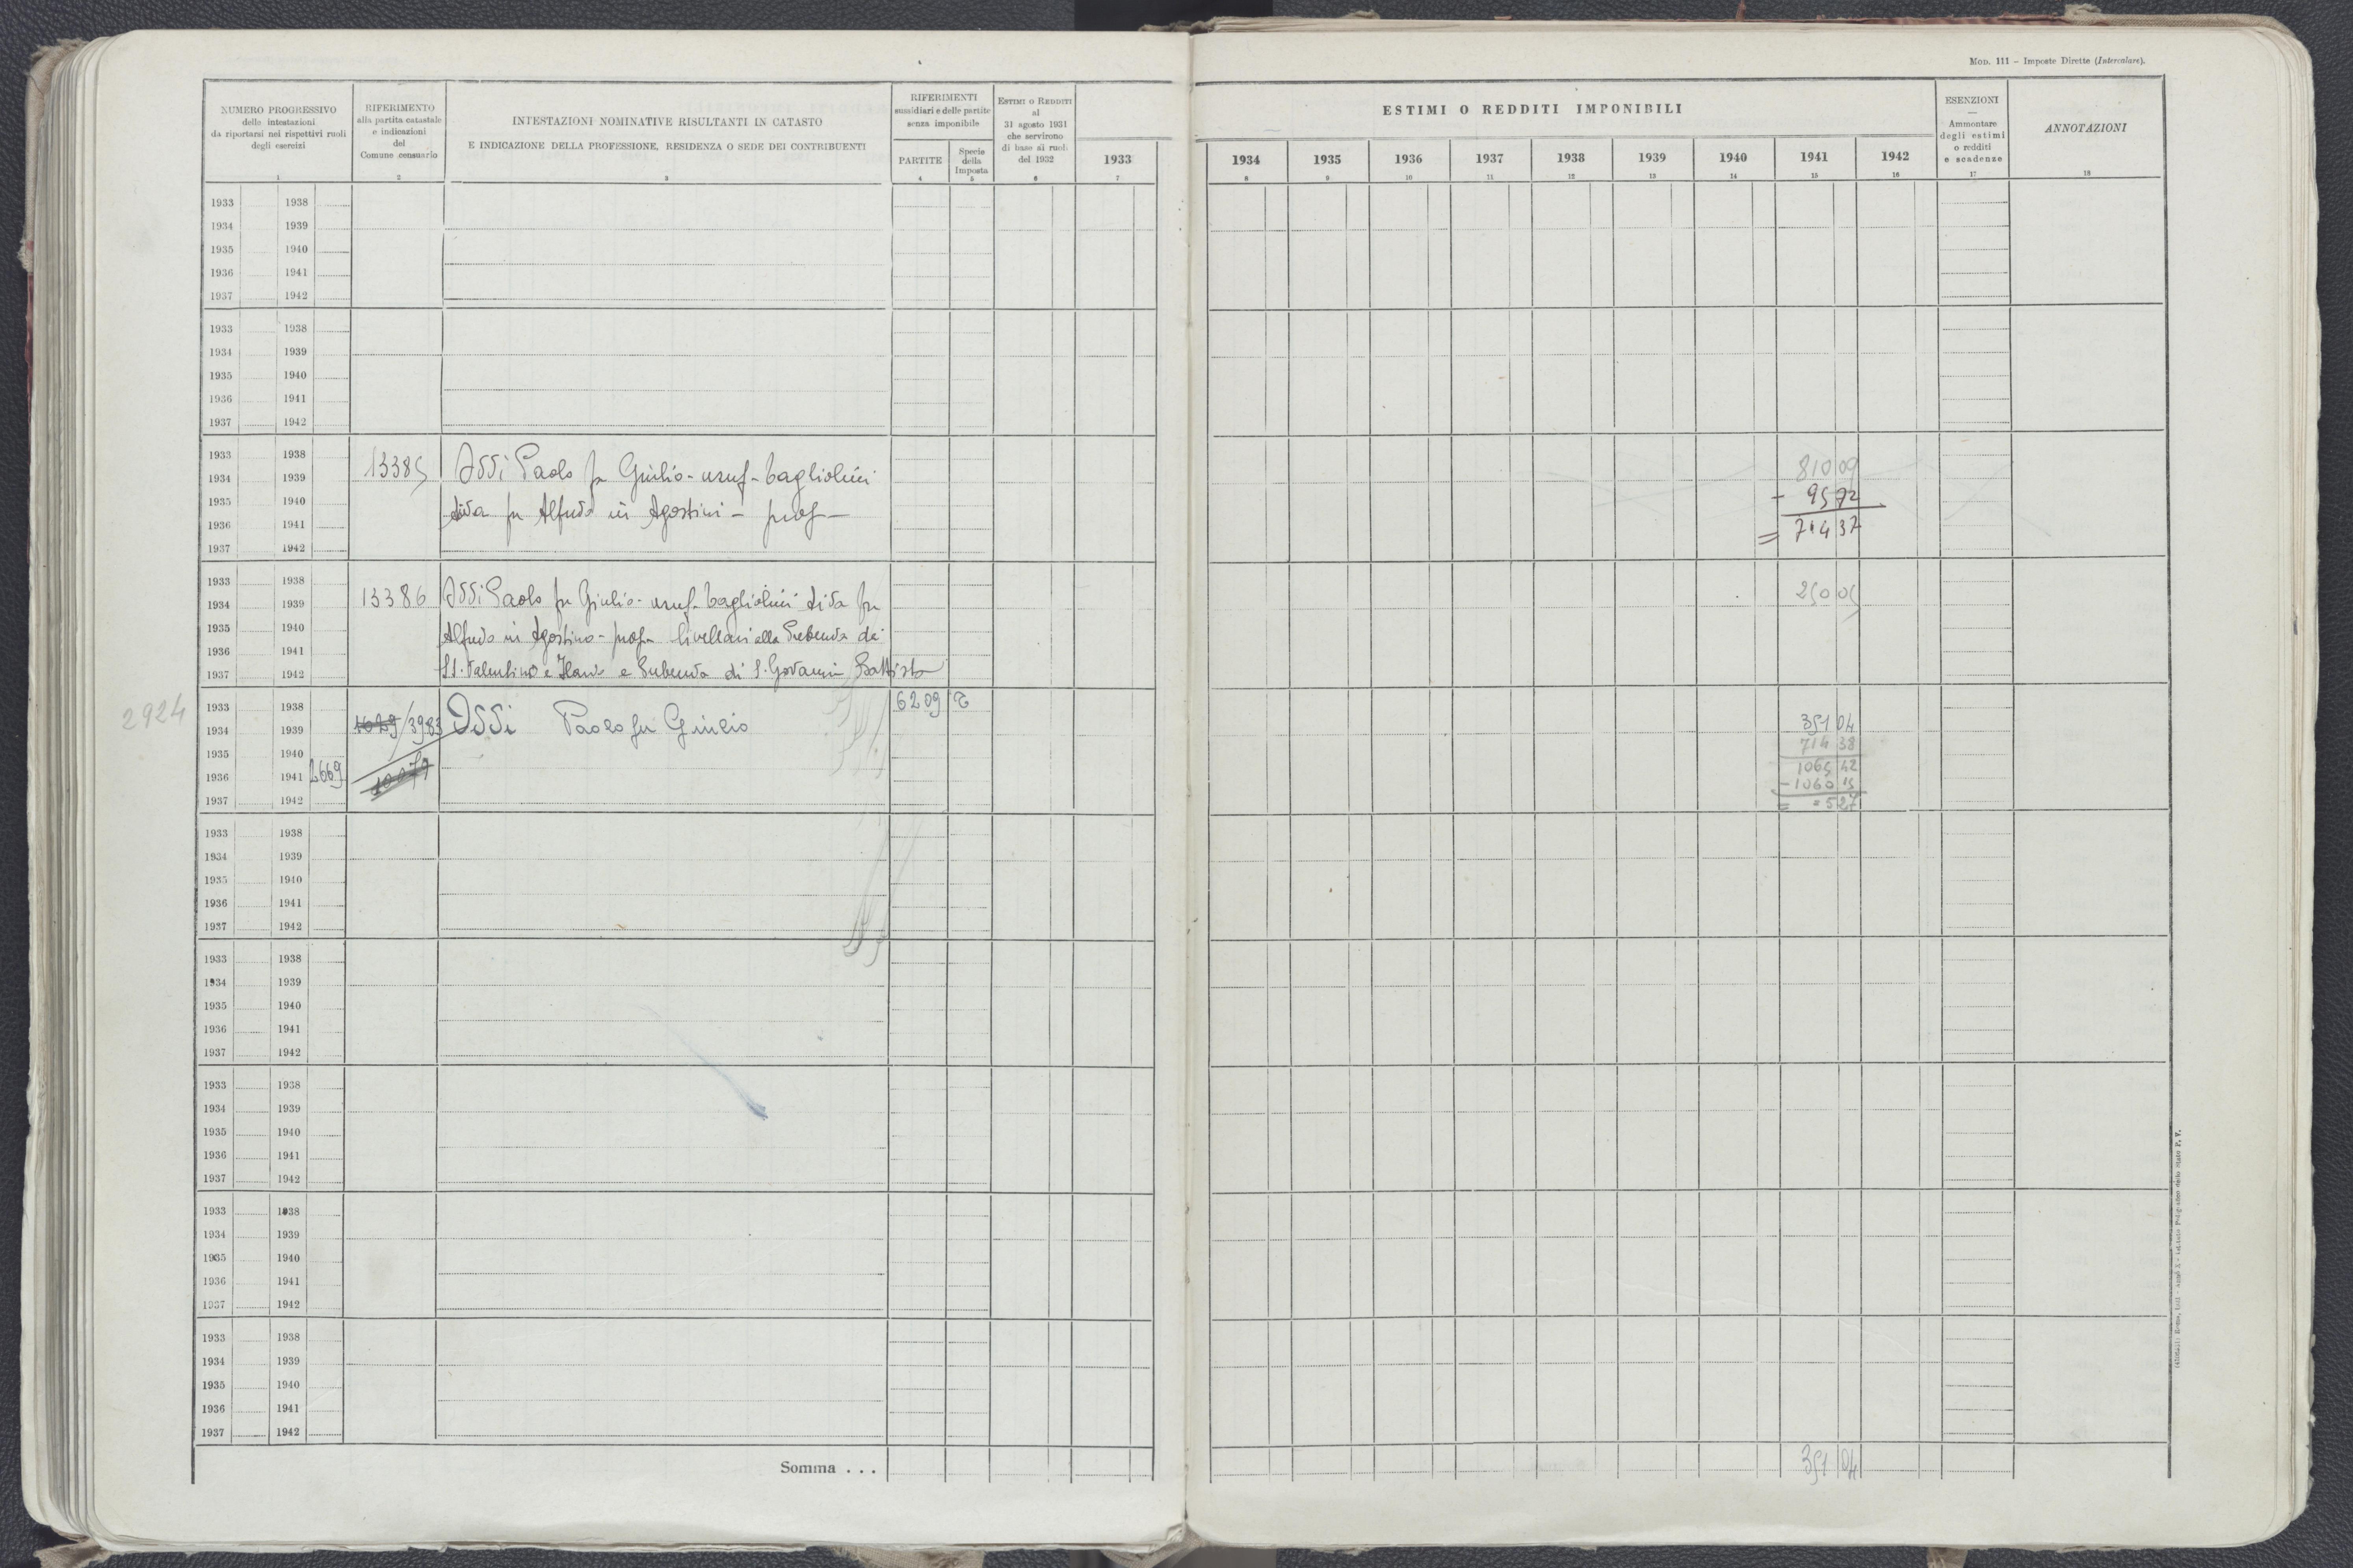 Mod. 111 - Imposte Dirette (Intercalare).
NUMERO PROGRESSIVO
delle intestazioni
da riportarsi nei rispettivi ruoli
degli esercizi
1
RIFERIMENTO
alla partita catastale
e indicazioni
del
Comune censuario
2
INTESTAZIONI NOMINATIVE RISULTANTI IN CATASTO
E INDICAZIONE DELLA PROFESSIONE, RESIDENZA O SEDE DEI CONTRIBUENTI
3
RIFERIMENTI
sussidiari e delle partite
senza imponibile
PARTITE
4
Specie
della
Imposta
5
Estimi o Redditi
al
31 agosto 1931
che servirono
di base ai ruoli
del 1932
6
1933
7
ESTIMI O REDDITI IMPONIBILI
1934 1935 1936 1937 1938 1939 1940 1941 1942
8 9 10 11 12 13 14 15 16
ESENZIONI
—
Ammontare
degli estimi
o redditi
e scadenze
17
ANNOTAZIONI
18
1933 1938
1934 1939
1935 1940
1936 1941
1937 1942
1933 1938
1934 1939
1935 1940
1936 1941
1937 1942
1933 1938
1934 1939
1935 1940
1936 1941
1937 1942
13385
Paolo fu Giulio - usuf - Bagliolini
fu Alfredo in Agostini - prop -
810 09
- 95 72
= 714 37
1933 1938
1934 1939
1935 1940
1936 1941
1937 1942
13386
Paolo fu Giulio - usuf - Bagliolini fu
Alfredo in Agostino - prop - livellari alla Prebenda dei
SS. Valentino e Ilario e Prebenda di S. Giovanni Battista
250 05
2924
1933 1938
1934 1939
1935 1940
1936 1941 2669
1937 1942
/3983
Paolo fu Giulio
6209
351 04
714 38
1065 42
- 1060 15
= = 5 27
1933 1938
1934 1939
1935 1940
1936 1941
1937 1942
1933 1938
1934 1939
1935 1940
1936 1941
1937 1942
1933 1938
1934 1939
1935 1940
1936 1941
1937 1942
1933 1938
1934 1939
1935 1940
1936 1941
1937 1942
1933 1938
1934 1939
1935 1940
1936 1941
1937 1942
Somma . . .
351 04